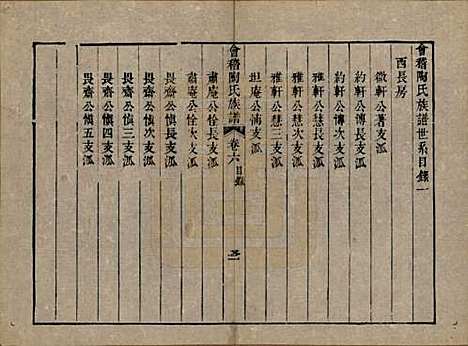 會稽陶氏族譜世系目錄一
西長房
徵軒公著支派
約軒公傳長支派
約軒公傳次支派
雅軒公慧長支派
雅軒公慧次支派
雅軒公慧三支派
坦庵公懶支派
會稽陶氏族譜 卷六 目錄
肅庵公佺長支派
肅庵公佺次支派
畏齋公愼長支派
畏齋公愼次支派
畏齋公愼三支派
畏齋公愼四支派
畏齋公愼五支派